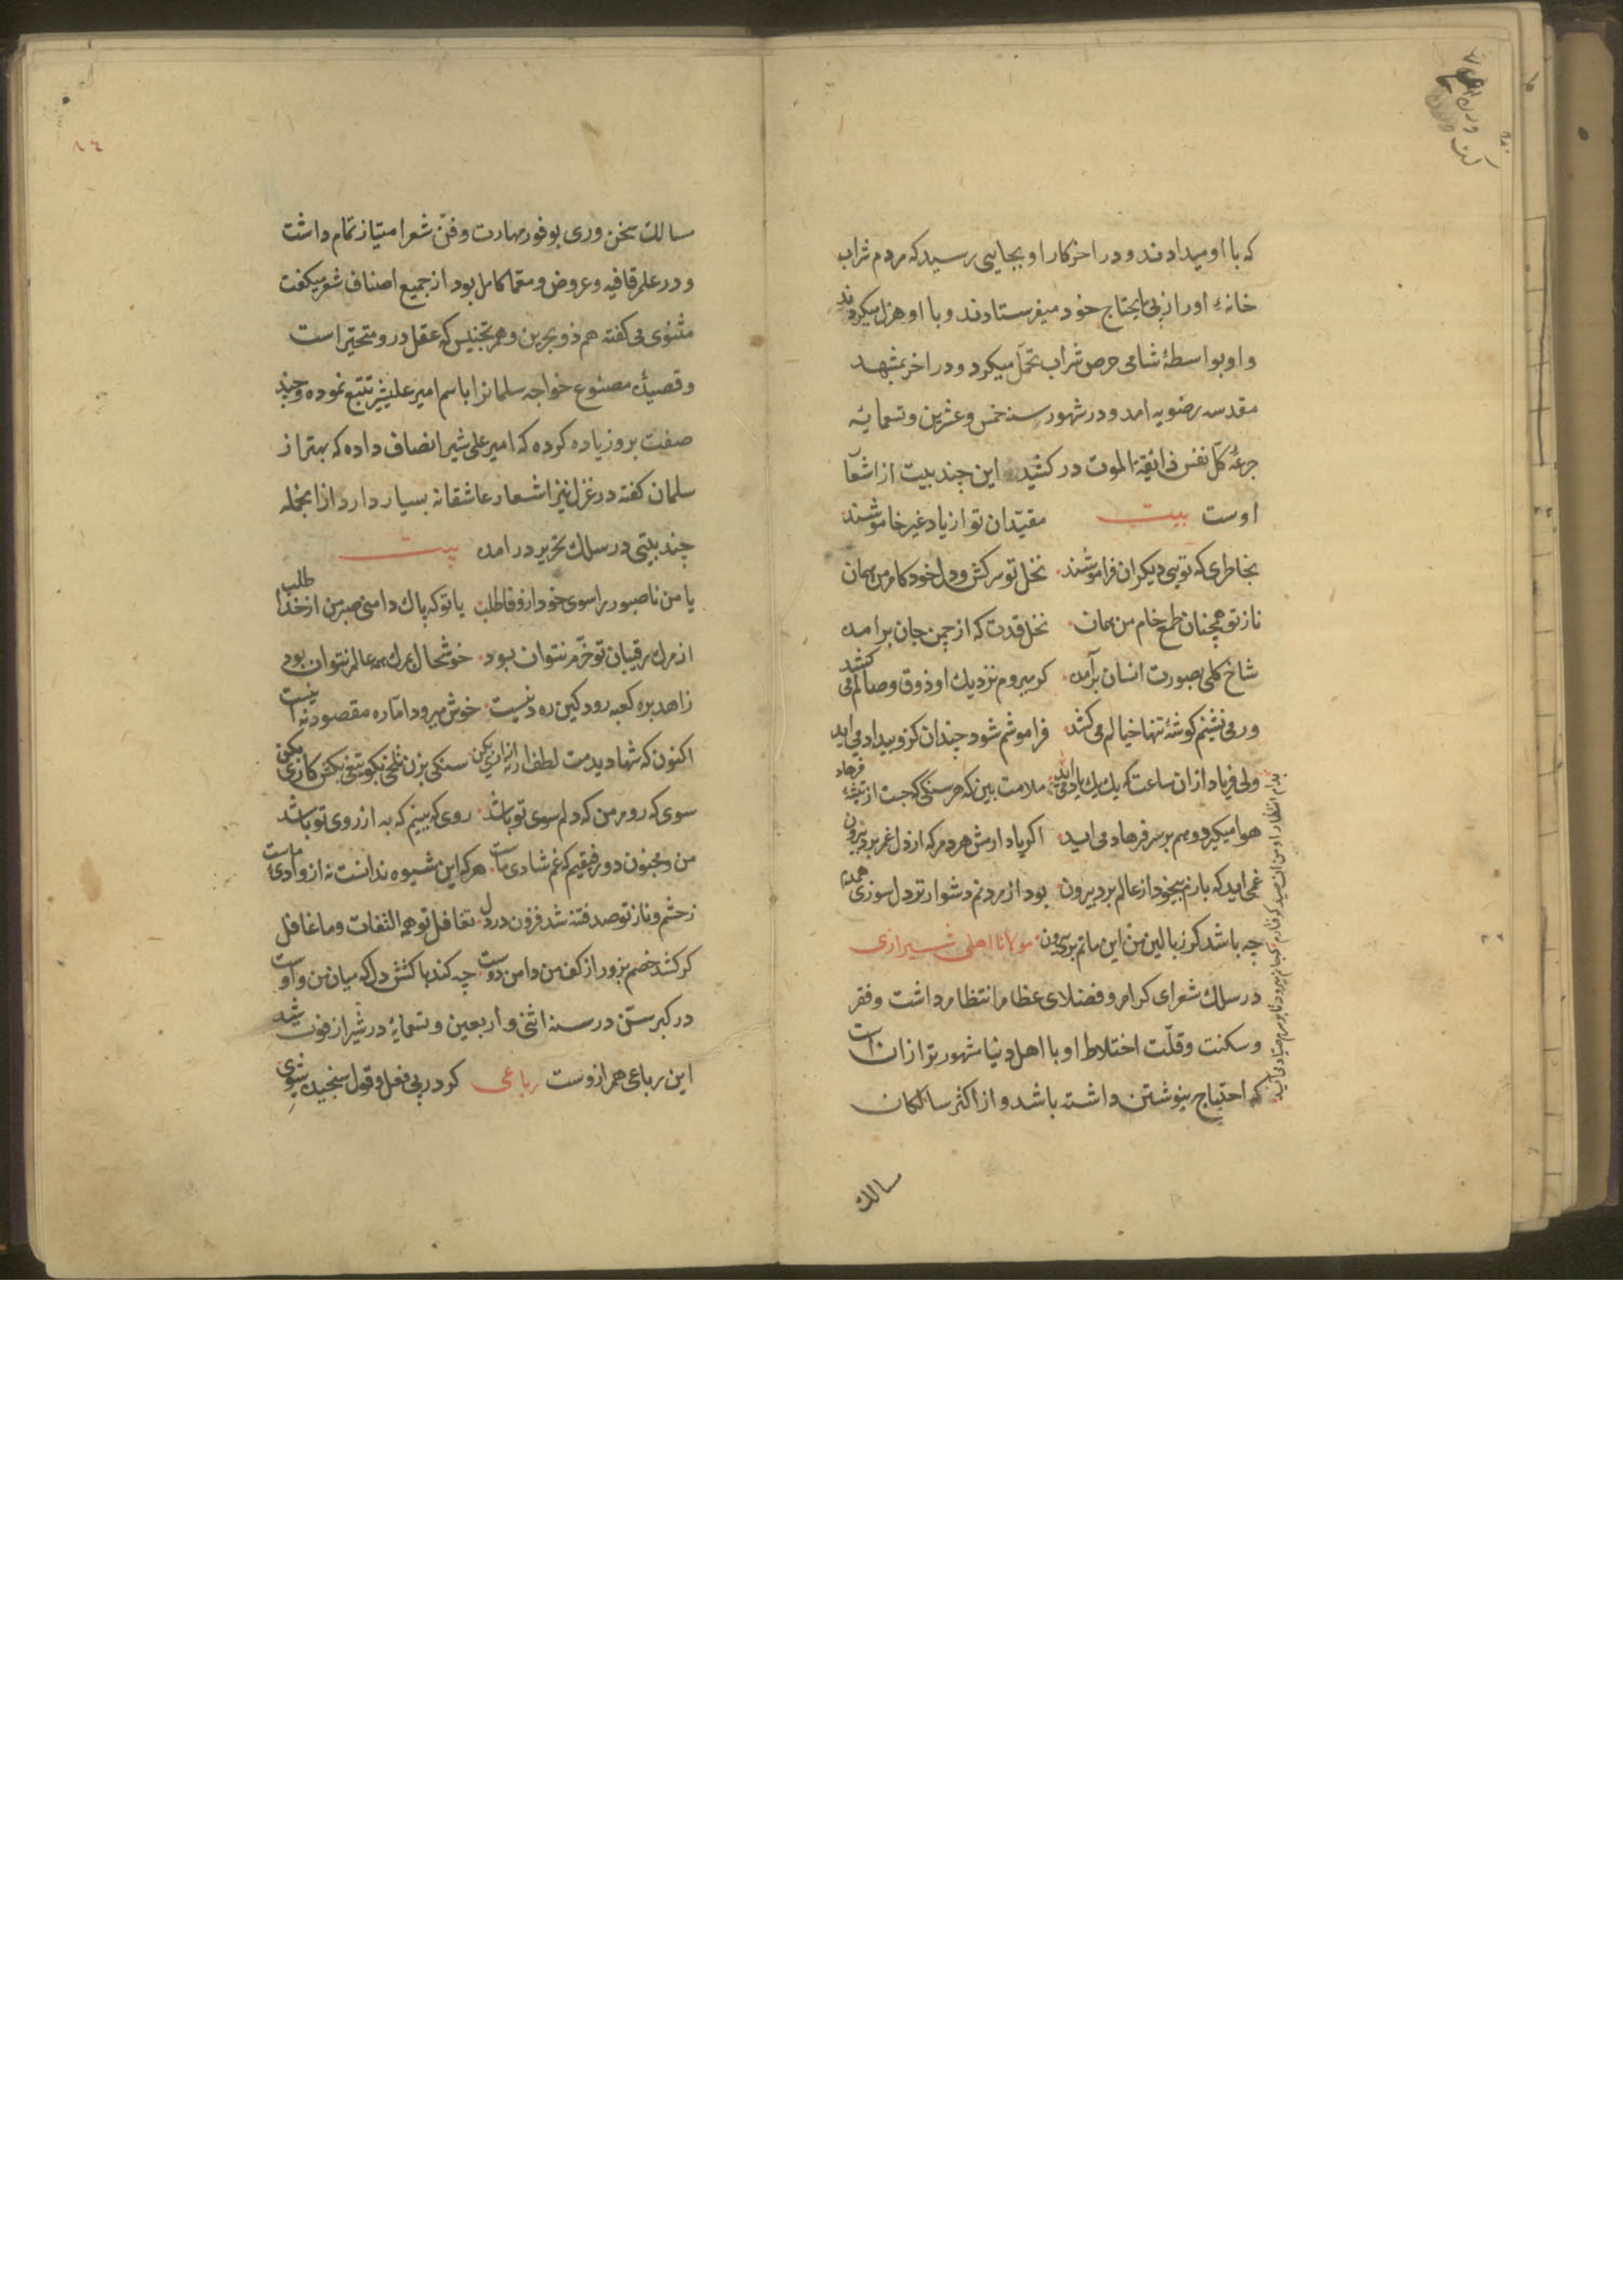 که با او میدادند و در اخر کار او بجایی رسید که مردم شراب
خانهٔ او را از پی مایحتاج خود میفرستادند و با او هزل میکردند
و او بواسطهٔ شامی حرص شراب تحمل میکرد و در اخر بمشهد
مقدسه رضویه امد و در شهور سنه خمس و عشرین و تسمایه
جرعهٔ کلّ نفس ذائقة الموت در کشید این چند بیت از اشعا
اوست بیت مقیّدان تو از یاد غیر خاموشند
بخاطری که تویی دیکران فراموشند نخل تو سرکش و دل خود کام من همان
ناز تو همچنان طمع خام من همان نخل قدت که از چمن جان برامده
شاخ کلی بصورت انسان برآمده کر میروم نزدیک او ذوق وصالم می کشد
ور می نشینم کوشهٔ تنها خیالم می کشد فراموشم شود چندان کزو بیداد می اید
ولی فریاد ازان ساعت که یک یک یاد می اید ملامت بین که هر سنکی که جست از تیشهٔ فرهاد
هوا میکیرد و هم بر سر فرهاد می اید اکر یاد ارمش هر دم که از دل غم برد بیرون
غمی اید که بازم بیخود از عالم برد بیرون بود از مردنم دشوارتر دل سوزی همدم
چه باشد کز بالین من این ماتم برد بیرون مولانا اهلی شیرازی
در سلک شعرای کرام و فضلای عظام انتظام داشت و فقر
و سکنت و قلّت اختلاط او با اهل دنیا شهورتر از ان است
که احتیاج بنوشتن داشته باشد و از اکثر سالکان
سالک
٨٤
سالک سخن وری بوفور مهارت و فنّ شعر امتیاز تمام داشت
و در علم قافیه و عروض و معما کامل بود از جمیع اصناف شعر میکفت
مثنوی یی کفته هم ذو بحرین و هم تجنیس که عقل درو متحیّر است
و قصیدهٔ مصنوع خواجه سلمانرا باسم امیر علیشیر تتبّع نموده و چند
صفت برو زیاده کرده که امیر علی شیر انصاف داده که بهتر از
سلمان کفته در غزل نیز اشعار عاشقانه بسیار دارد از انجمله
چند بیتی در سلک تحریر در امده بیت
یا من ناصبور را سوی خود از وفا طلب یا تو که پاک دامنی صبر من از خدا طلب
از مرک رقیبان تو خرّم نتوان بود خوشحال بمرک همه عالم نتوان بود
زاهد بره کعبه رود کین ره دنیست خوش میرود اما ره مقصود نه اینست
اکنون که شها دیدمت لطف ار نه ازاری بکن سنکی بزن تلخی بکو تیغی بکش کاری بکن
سوی که روم من که دلم سوی تو باشد روی که ببینم که به از روی تو باشد
من و مجنون دو رفیقیم که غم شادی ماست هر که این شیوه ندانست نه از وادی ماست
زخشم و ناز تو صد فتنه شد فزون در دل تغافل تو همه التفات و ما غافل
کر کشد خصم بزور از کف من دامن دوست چه کند با کشش دل که میان من و اوست
در کبر سنّ در سنه اثنی و اربعین و تسمایهٔ در شیراز فوت شد
این رباعی هم ازوست رباعی کر در پی فعل و قول سنجیده شوی